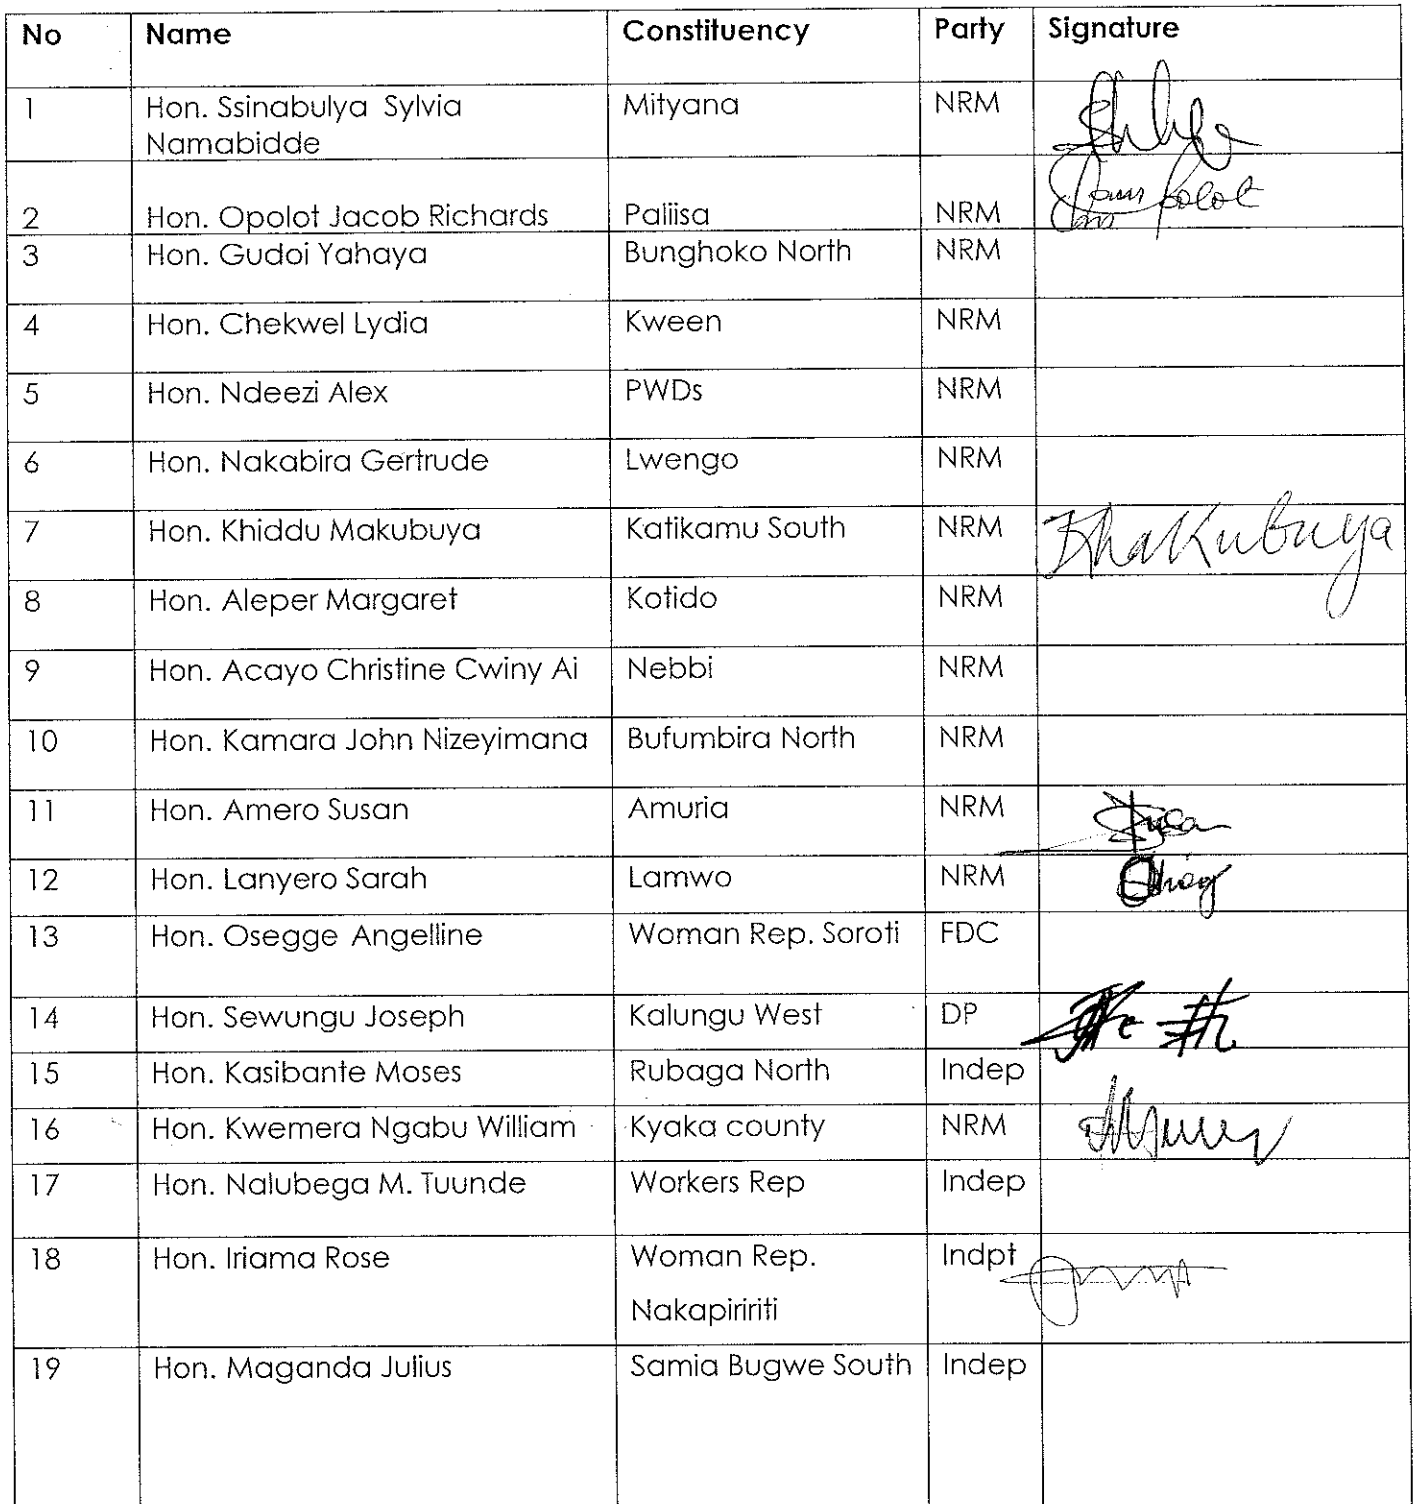 No Name Constituency Party Signature
1 Hon. Ssinabulya Sylvia Mityana NRM
Namabidde
2 Hon. Opolot Jacob Richards Paliisa NRM
3 Hon. Gudoi Yahaya Bunghoko North NRM
4 Hon. Chekwel Lydia Kween NRM
5 Hon. Ndeezi Alex PWDs NRM
6 Hon. Nakabira Gertrude Lwengo NRM
7 Hon. Khiddu Makubuya Katikamu South NRM
8 Hon. Aleper Margaret Kotido NRM
9 Hon. Acayo Christine Cwiny Ai Nebbi NRM
10 Hon. Kamara John Nizeyimana Bufumbira North NRM
11 Hon. Amero Susan Amuria NRM
12 Hon. Lanyero Sarah Lamwo NRM
13 Hon. Osegge Angelline Woman Rep. Soroti FDC
14 Hon. Sewungu Joseph Kalungu West DP
15 Hon. Kasibante Moses Rubaga North Indep
16 Hon. Kwemera Ngabu William Kyaka county NRM
17 Hon. Nalubega M. Tuunde Workers Rep Indep
18 Hon. Iriama Rose Woman Rep. Indpt
Nakapiririti
19 Hon. Maganda Julius Samia Bugwe South Indep